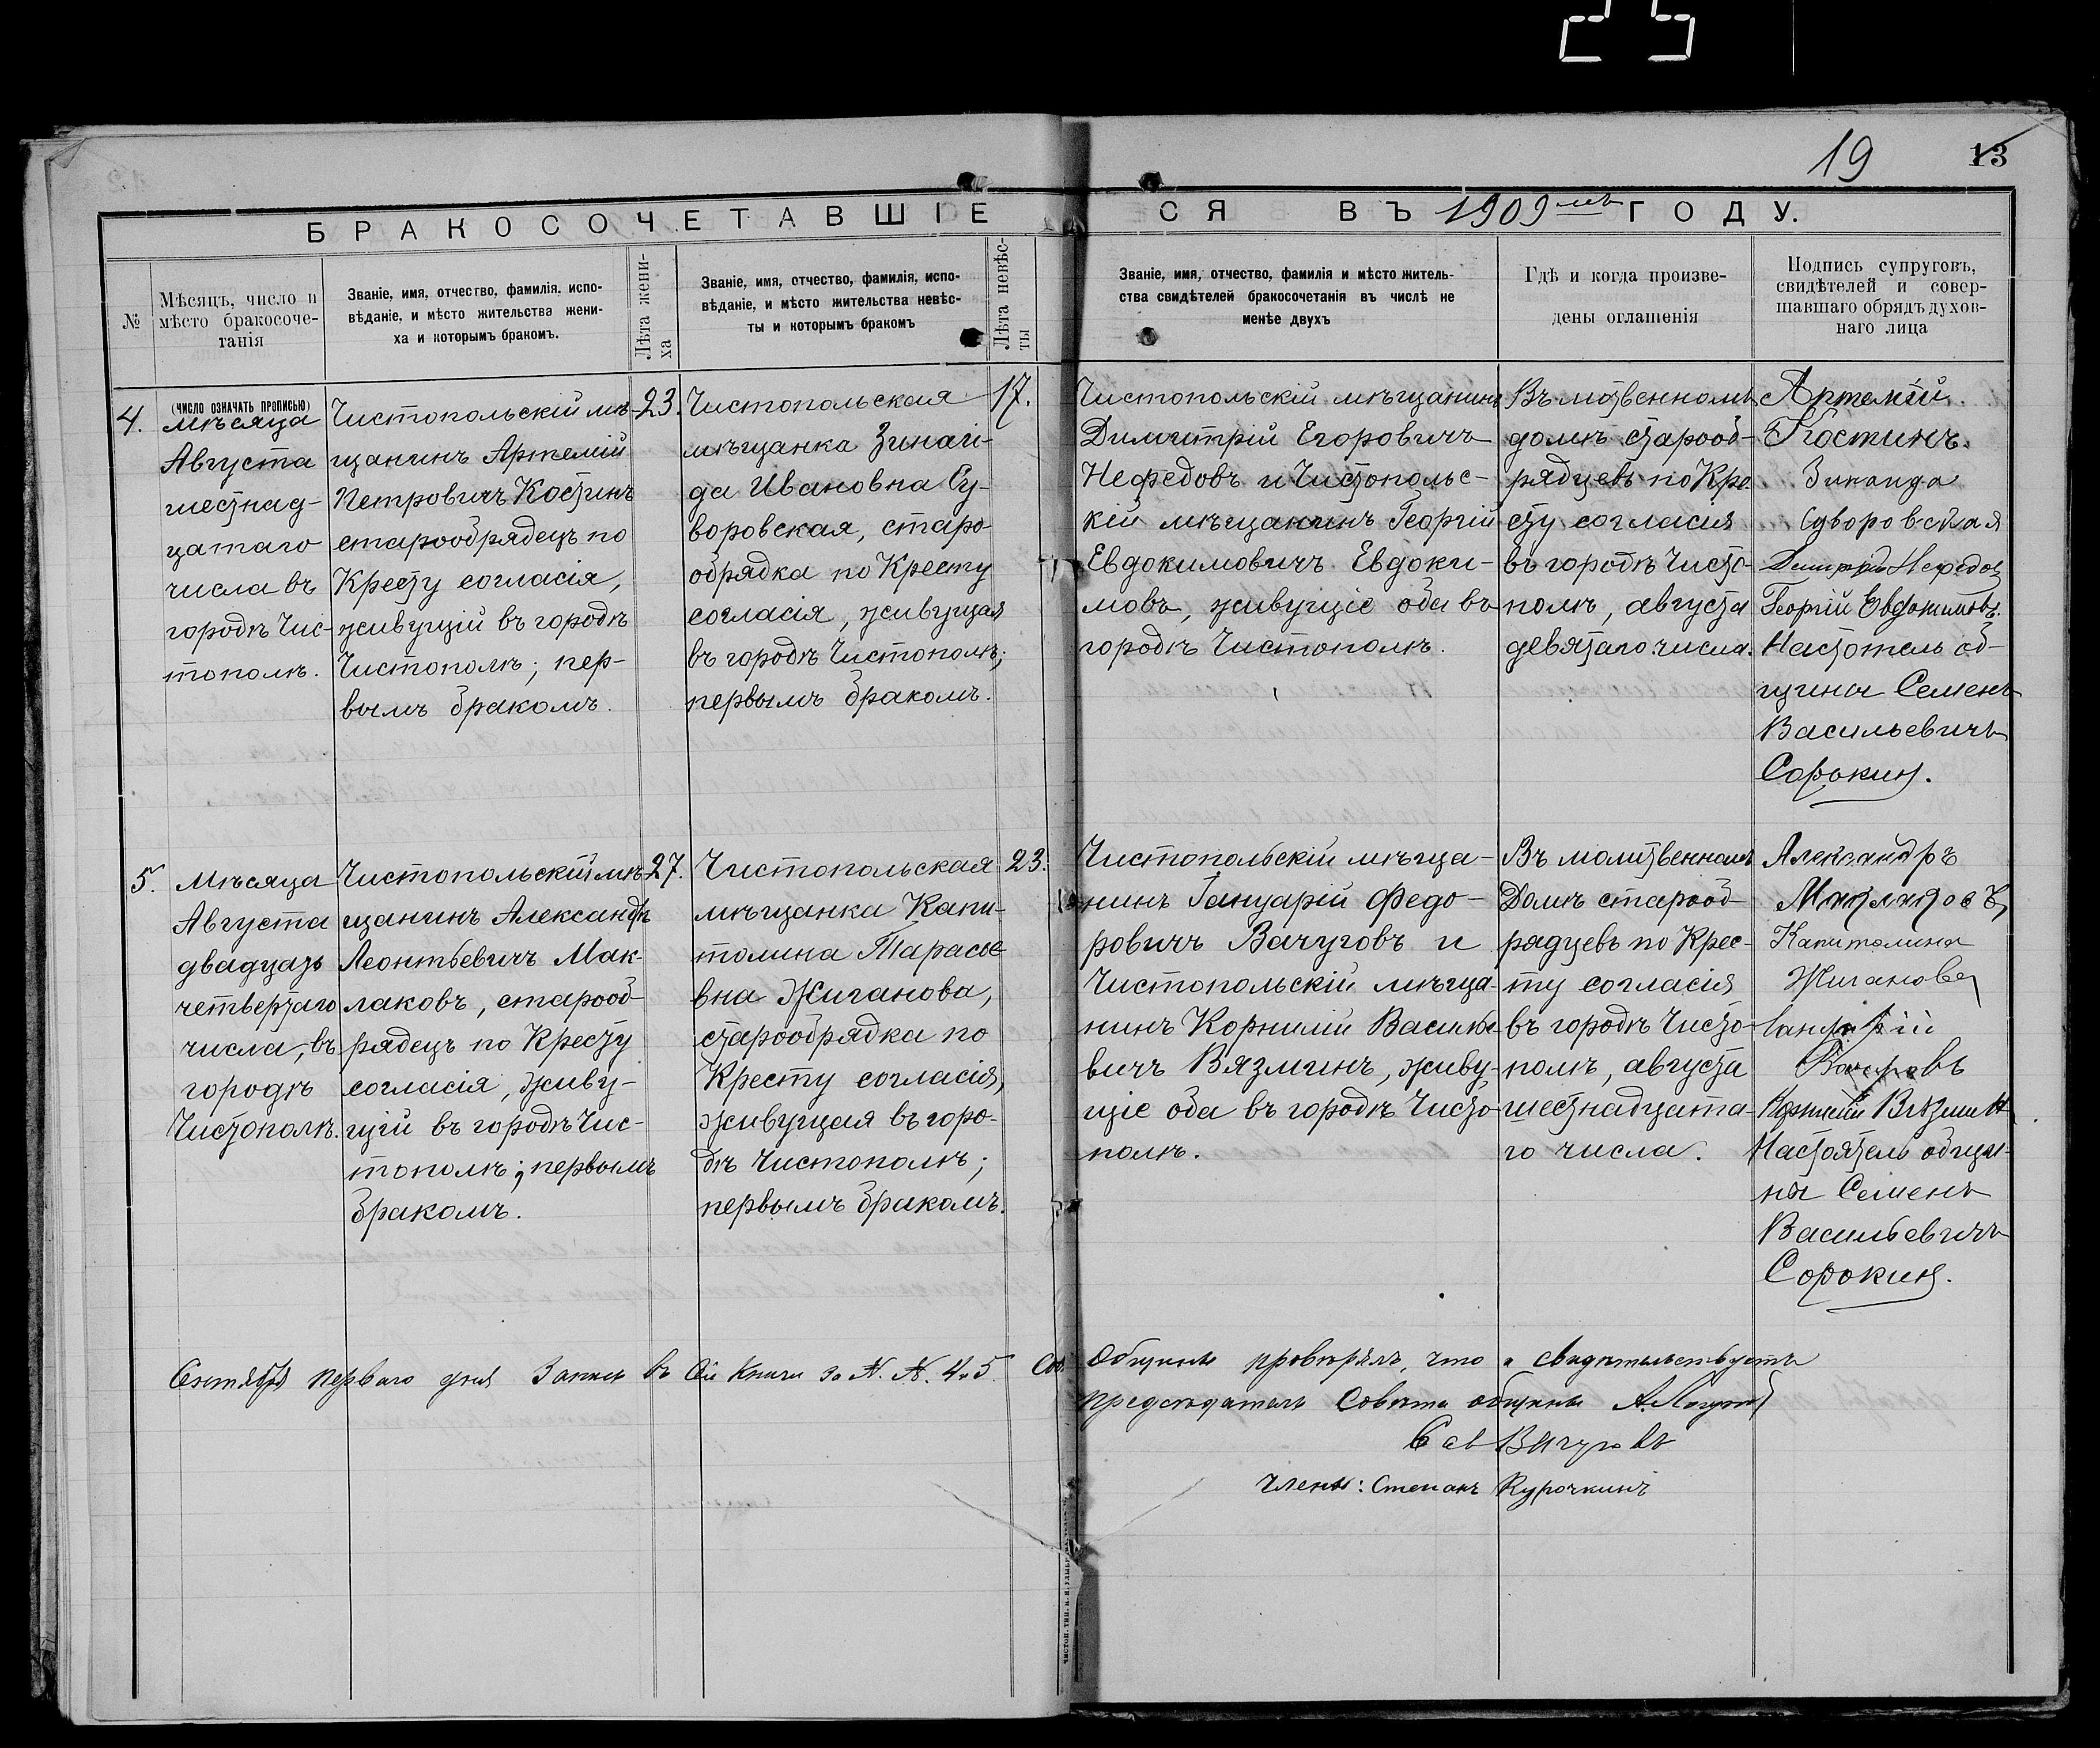 25
19
13
БРАКОСОЧЕТАВШІЕСЯ ВЪ 1909мъ ГОДУ.
№
Мѣсяцъ, число и
мѣсто бракосоче-
танія
Званіе, имя, отчество, фамилія, испо-
вѣданіе, и мѣсто жительства жени-
ха и которымъ бракомъ.
Лѣта жени-
ха
Званіе, имя, отчество, фамилія, испо-
вѣданіе, и мѣсто жительства невѣс-
ты и которымъ бракомъ
Лѣта невѣс-
ты
Званіе, имя, отчество, фамилія и мѣсто житель-
ства свидѣтелей бракосочетанія въ числѣ не
менѣе двухъ
Гдѣ и когда произве-
дены оглашенія
Подпись супруговъ,
свидѣтелей и совер-
шавшаго обрядъ духов-
наго лица
(ЧИСЛО ОЗНАЧАТЬ ПРОПИСЬЮ)
4.
мѣсяца
Августа
шестнад-
цатаго
числа въ
городѣ Чис-
тополѣ.
Чистопольскій мѣ-
щанинъ Артемій
Петровичъ Костинъ
старообрядецъ по
Кресту согласія,
живущій въ городѣ
Чистополѣ; пер-
вымъ бракомъ.
23.
Чистопольская
мѣщанка Зинаи-
да Ивановна Су-
воровская, старо-
обрядка по Кресту
согласія, живущая
въ городѣ Чистополѣ;
первымъ бракомъ.
17.
Чистопольскій мѣщанинъ
Димитрій Егоровичъ
Нефедовъ и Чистопольс-
кій мѣщанинъ Георгій
Евдокимовичъ Евдоки-
мовъ, живущіе оба въ
городѣ Чистополѣ.
Въ мотвенномъ
домѣ старооб-
рядцевъ по Кре
сту согласія
въ городѣ Чисто-
полѣ, августа
девятаго числа.
Артемій
Костинъ.
Зинаида
Суворовская
Димитрій Нефедов
Георгій Евдокимовъ.
Настотель об-
щины Семенъ
Васильевичъ
Сорокинъ.
5.
Мѣсяца
Августа
двадцать
четвертаго
числа, въ
городѣ
Чистополѣ.
Чистопольскій мѣ-
щанинъ Александръ
Леонтьевичъ Мак-
лаковъ, старооб-
рядецъ по Кресту
согласія, живу-
щій въ городѣ Чис-
тополѣ; первымъ
бракомъ.
27.
Чистопольская
мѣщанка Капи-
толина Тарасье
вна Жиганова,
старообрядка по
Кресту согласія,
живущая въ горо-
дѣ Чистополѣ;
первымъ бракомъ.
23.
Чистопольскій мѣща-
нинъ Іануарій Федо-
ровичъ Вачуговъ и
Чистопольскій мѣща-
нинъ Корнилій Василье-
вичъ Вязминъ, живу-
щіе оба въ городѣ Чисто-
полѣ.
Въ молитвенномъ
Домѣ старооб-
рядцевъ по Крес-
ту согласія
въ городѣ Чисто-
полѣ, августа
шестнадцата-
го числа.
Александръ
Маклаковъ
Капитолина
Жиганова
Настоятель общи-
ны Семенъ
Васильевичъ
Сорокинъ.
Сентября перваго дня Записи въ сей книги за №. №. 4 и 5
общины провѣрялъ, что и свидѣтельствуетъ
предсѣдатель Совѣта общины
Вачуговъ
Члены: Степанъ Курочкинъ